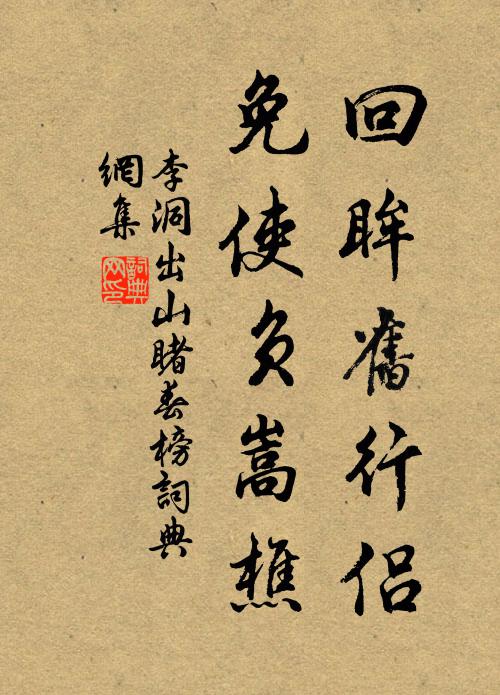 回眸舊行侶
免使負嵩樵
李洞出山睹春榜詞典
網集
詞典
网印